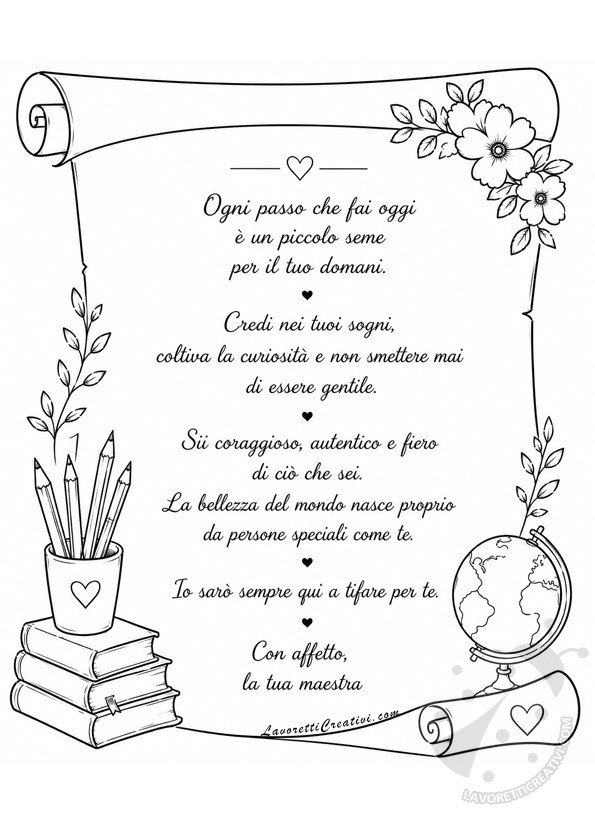 Ogni passo che fai oggi
è un piccolo seme
per il tuo domani.
Credi nei tuoi sogni,
coltiva la curiosità e non smettere mai
di essere gentile.
Sii coraggioso, autentico e fiero
di ciò che sei.
La bellezza del mondo nasce proprio
da persone speciali come te.
Io sarò sempre qui a tifare per te.
Con affetto,
la tua maestra
LavorettiCreativi.com
LAVORETTICREATIVI.COM